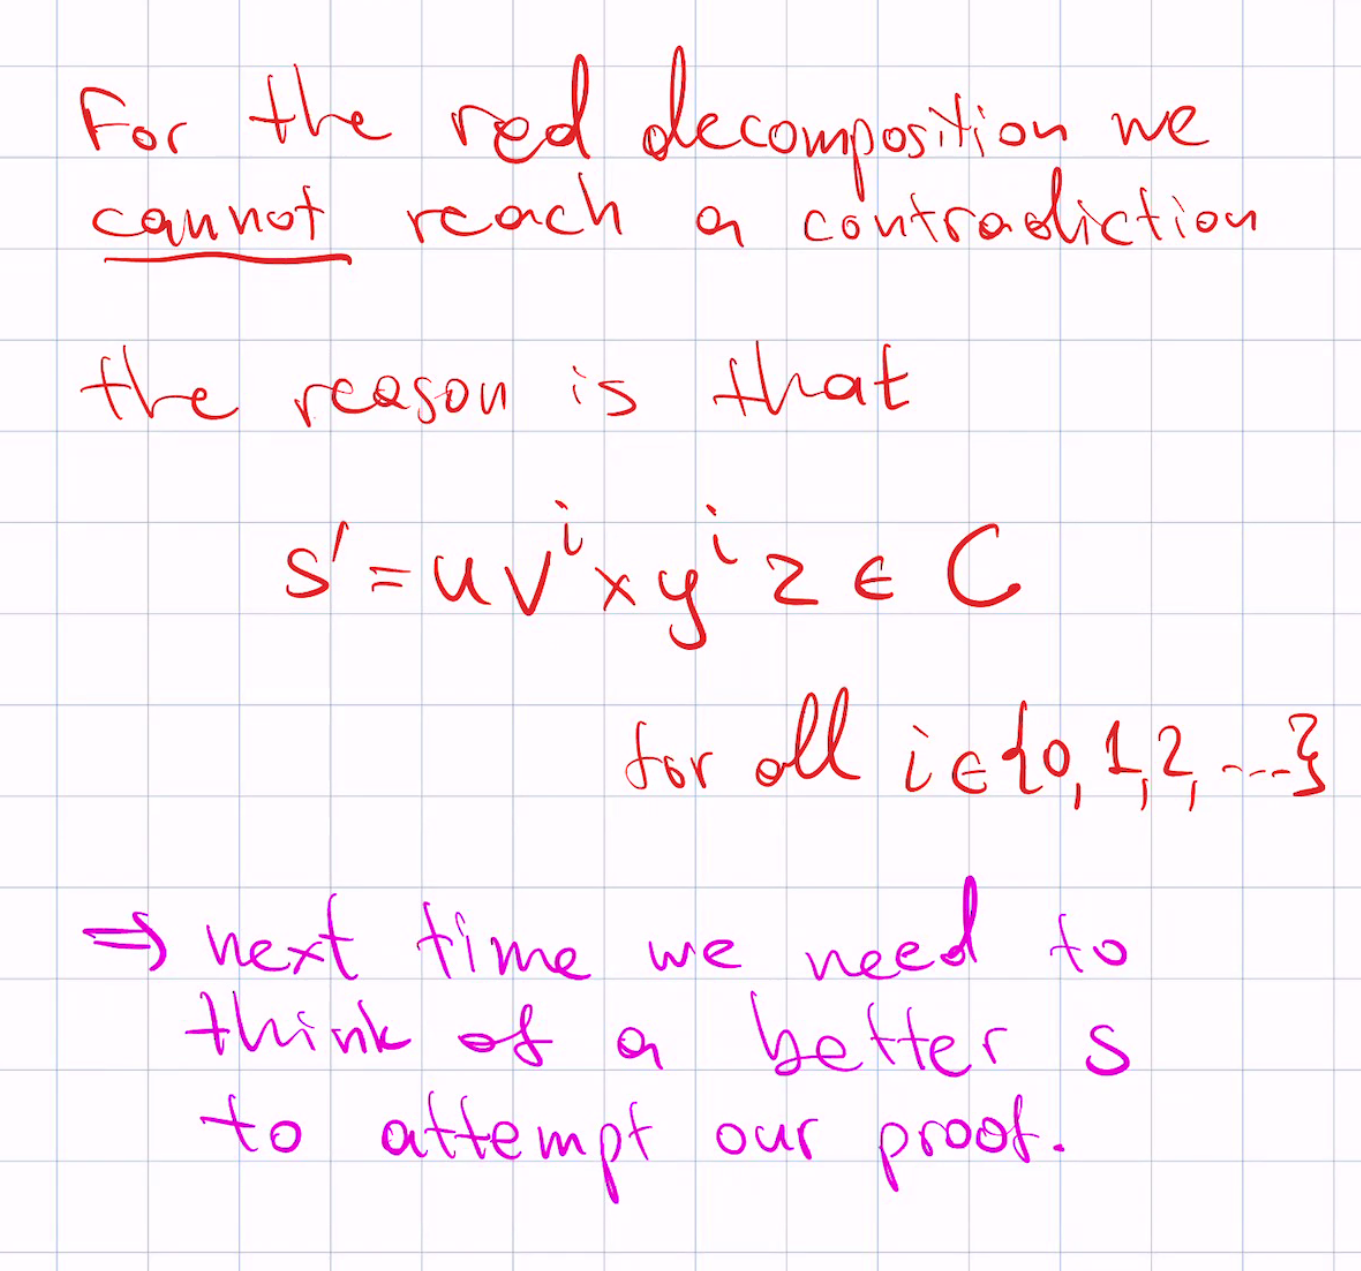 For the red decomposition we
cannot reach a contradiction
the reason is that
s' = u vⁱ x yⁱ z ∈ C
for all i ∈ {0, 1, 2, ...}
⇒ next time we need to
think of a better s
to attempt our proof.